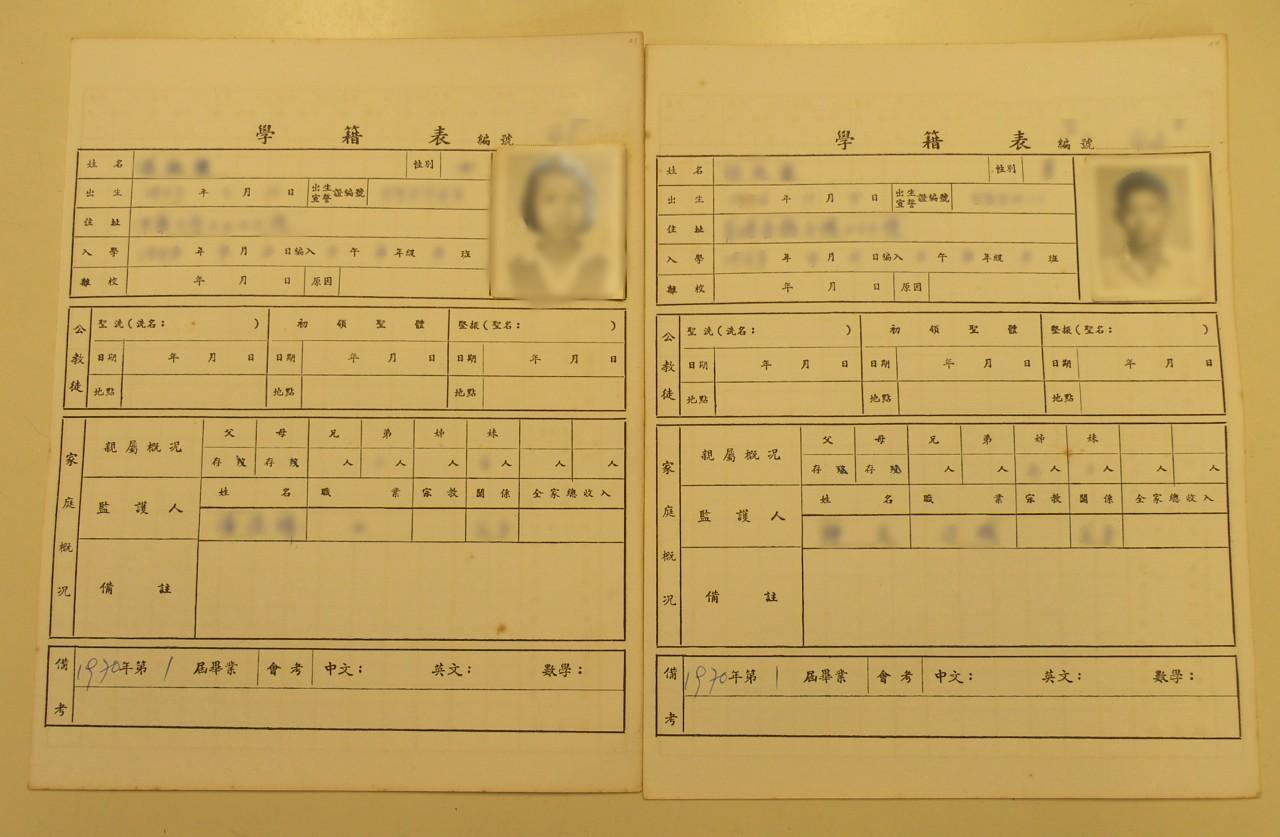 學 籍 表 編號
姓 名 性別
出 生 年 月 日 出生宣誓證編號
住 址
入 學 年 月 日編入 午 年級 班
離 校 年 月 日 原因
公教徒
聖洗(洗名: ) 初 領 聖 體 堅振(聖名: )
日期 年 月 日 日期 年 月 日 日期 年 月 日
地點 地點 地點
家庭概況
親屬概況 父 母 兄 弟 姊 妹
存 歿 存 歿 人 人 人 人 人 人
監護人 姓 名 職 業 宗教 關係 全家總收入
備 註
備考
1970年第 1 屆畢業 會考 中文: 英文: 數學:
學 籍 表 編號
姓 名 性別
出 生 年 月 日 出生宣誓證編號
住 址
入 學 年 月 日編入 午 年級 班
離 校 年 月 日 原因
公教徒
聖洗(洗名: ) 初 領 聖 體 堅振(聖名: )
日期 年 月 日 日期 年 月 日 日期 年 月 日
地點 地點 地點
家庭概況
親屬概況 父 母 兄 弟 姊 妹
存 歿 存 歿 人 人 人 人 人 人
監護人 姓 名 職 業 宗教 關係 全家總收入
備 註
備考
1970年第 1 屆畢業 會考 中文: 英文: 數學: